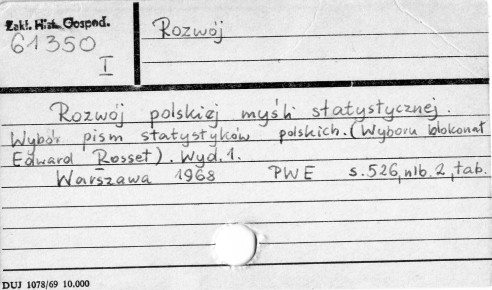 Zakł. Hist. Gospod.
61350
I
Rozwój
Rozwój polskiej myśli statystycznej.
Wybór pism statystyków polskich. (Wyboru dokonał
Edward Rosset). Wyd. 1.
Warszawa 1968 PWE s. 526, nlb. 2, tab.
DUJ 1078/69 10.000